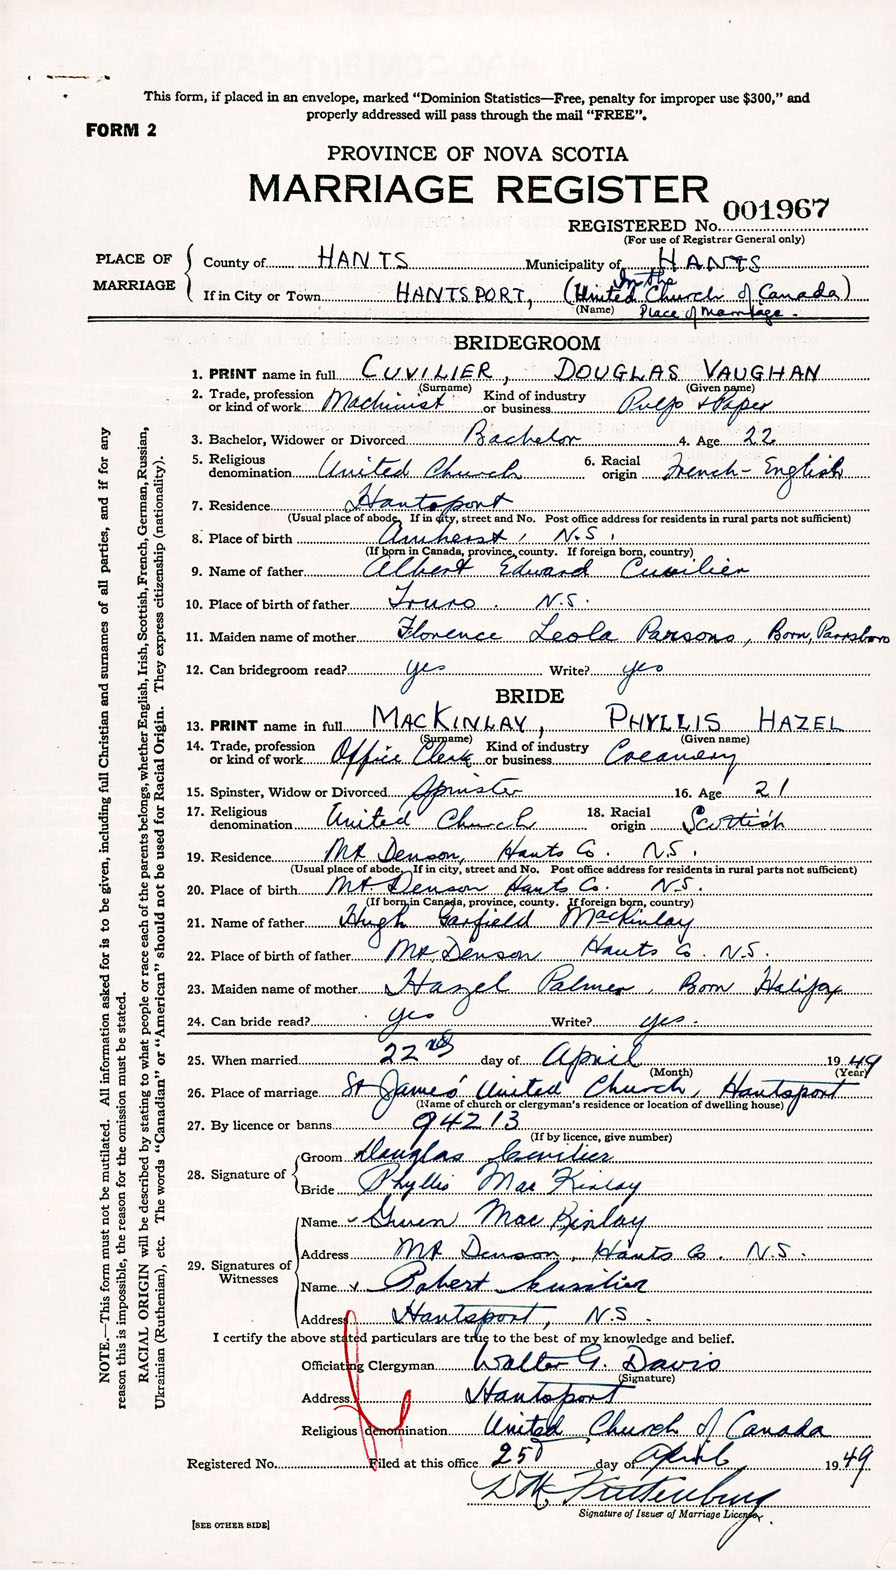 This form, if placed in an envelope, marked “Dominion Statistics—Free, penalty for improper use $300,” and
properly addressed will pass through the mail “FREE”.
FORM 2
PROVINCE OF NOVA SCOTIA
MARRIAGE REGISTER
REGISTERED No. 001967
(For use of Registrar General only)
PLACE OF MARRIAGE
County of HANTS Municipality of HANTS
If in City or Town HANTSPORT, (In the United Church of Canada)
(Name) Place of marriage.
BRIDEGROOM
1. PRINT name in full CUVILIER, DOUGLAS VAUGHAN
(Surname) (Given name)
2. Trade, profession or kind of work Machinist Kind of industry or business Pulp & Paper
3. Bachelor, Widower or Divorced Bachelor 4. Age 22
5. Religious denomination United Church 6. Racial origin French-English
7. Residence Hantsport
(Usual place of abode. If in city, street and No. Post office address for residents in rural parts not sufficient)
8. Place of birth Amherst, N.S.
(If born in Canada, province, county. If foreign born, country)
9. Name of father Albert Edward Cuvilier
10. Place of birth of father Truro. N.S.
11. Maiden name of mother Florence Leola Parsons, Born, Parrsboro
12. Can bridegroom read? yes Write? yes
BRIDE
13. PRINT name in full MACKINLAY, PHYLLIS HAZEL
(Surname) (Given name)
14. Trade, profession or kind of work Office Clerk Kind of industry or business Creamery
15. Spinster, Widow or Divorced Spinster 16. Age 21
17. Religious denomination United Church 18. Racial origin Scottish
19. Residence Mt Denson, Hants Co. N.S.
(Usual place of abode. If in city, street and No. Post office address for residents in rural parts not sufficient)
20. Place of birth Mt. Denson Hants Co. N.S.
(If born in Canada, province, county. If foreign born, country)
21. Name of father Hugh Garfield MacKinlay
22. Place of birth of father Mt. Denson Hants Co. N.S.
23. Maiden name of mother Hazel Palmer, Born Halifax
24. Can bride read? yes Write? yes.
25. When married 22nd day of April 1949
(Month) (Year)
26. Place of marriage St James' United Church, Hantsport
(Name of church or clergyman's residence or location of dwelling house)
27. By licence or banns 94213
(If by licence, give number)
28. Signature of
Groom Douglas Cuvilier
Bride Phyllis MacKinlay
29. Signatures of Witnesses
Name Gwen MacKinlay
Address Mt Denson, Hants Co. N.S.
Name Robert Cuvilier
Address Hantsport, N.S.
I certify the above stated particulars are true to the best of my knowledge and belief.
Officiating Clergyman Walter G. Davis
(Signature)
Address Hantsport
Religious denomination United Church of Canada
Registered No. Filed at this office 25 day of April 1949
Signature of Issuer of Marriage License.
[SEE OTHER SIDE]
NOTE.—This form must not be mutilated. All information asked for is to be given, including full Christian and surnames of all parties, and if for any
reason this is impossible, the reason for the omission must be stated.
RACIAL ORIGIN will be described by stating to what people or race each of the parents belongs, whether English, Irish, Scottish, French, German, Russian,
Ukrainian (Ruthenian), etc. The words “Canadian” or “American” should not be used for Racial Origin. They express citizenship (nationality).